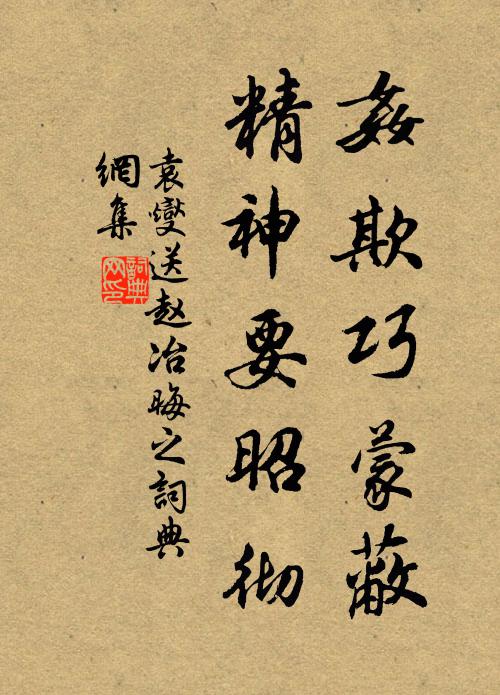 姦欺巧蒙蔽
精神要昭彻
袁燮送赵冶晦之詞典
網集
詞典網印